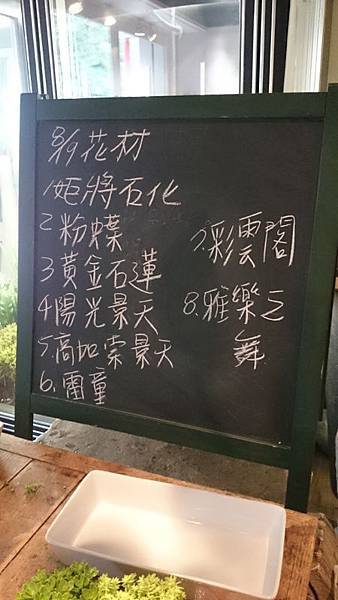 8/9花材
1.姬將石化
2粉蝶
3黃金石蓮
4陽光景天
5.高加索景天
6.雷童
7.彩雲閣
8.雅樂之
舞